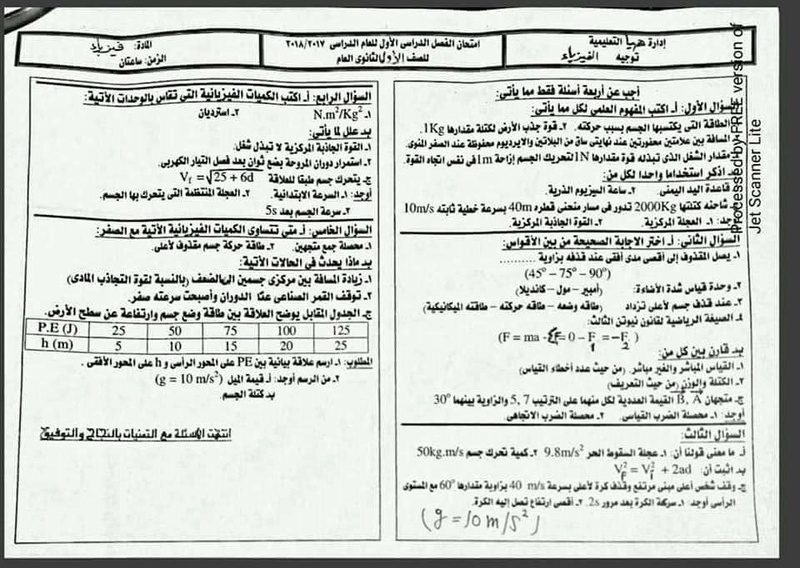 إدارة ههيا التعليمية
توجيه الفيزياء
امتحان الفصل الدراسى الأول للعام الدراسى ٢٠١٨/٢٠١٧
للصف الأول الثانوى العام
المادة: فيزياء
الزمن: ساعتان
أجب عن أربعة أسئلة فقط مما يأتى:
السؤال الأول: أـ اكتب المفهوم العلمى لكل مما يأتى:
الطاقة التى يكتسبها الجسم بسبب حركته. ٢ـ قوة جذب الأرض لكتلة مقدارها 1Kg
المسافة بين علامتين محفورتين عند نهايتى ساق من البلاتين والايرديوم محفوظة عند الصفر المئوى.
مقدار الشغل الذى تبذله قوة مقدارها 1N لتحريك الجسم إزاحة 1m فى نفس اتجاه القوة.
اذكر استخداما واحدا لكل من:
قاعدة اليد اليمنى. ٢ـ ساعة السيزيوم الذرية.
شاحنه كتلتها 2000Kg تدور فى مسار منحنى قطره 40m بسرعة خطية ثابته 10m/s
جد: ١ـ العجلة المركزية. ٢ـ القوة الجاذبة المركزية.
السؤال الثانى: أـ اختر الاجابة الصحيحة من بين الأقواس:
١ـ يصل المقذوف إلى أقصى مدى أفقى عند قذفه بزاوية ..........
(45° – 75° – 90°)
٢ـ وحدة قياس شدة الأضاءة: (أمبير – مول – كانديلا)
٣ـ عند قذف جسم لأعلى تزداد (طاقة وضعه – طاقة حركته – طاقته الميكانيكية)
٤ـ الصيغة الرياضية لقانون نيوتن الثالث:
(F = ma - ΣF= 0 – F1 = –F2 )
بـ قارن بين كل من:
١ـ القياس المباشر والغير مباشر. (من حيث عدد أخطاء القياس)
٢ـ الكتلة والوزن (من حيث التعريف)
جـ متجهان B, A القيمة العددية لكل منهما على الترتيب 5, 7 والزاوية بينهما 30°
أوجد: ١ـ محصلة الضرب القياسى. ٢ـ محصلة الضرب الاتجاهى.
السؤال الثالث:
أـ ما معنى قولنا أن: ١ـ عجلة السقوط الحر 9.8m/s² ٢ـ كمية تحرك جسم 50kg.m/s
بـ اثبت أن: Vf² = Vi² + 2ad
جـ وقف شخص أعلى مبنى مرتفع وقذف كرة لأعلى بسرعة 40 m/s بزاوية مقدارها 60° مع المستوى
الرأسى أوجد: ١ـ سركة الكرة بعد مرور 2s. ٢ـ أقصى ارتفاع تصل إليه الكرة.
(g = 10 m/s²)
السؤال الرابع: أـ اكتب الكميات الفيزيائية التى تقاس بالوحدات الأتية:
١ـ N.m²/Kg² ٢ـ استرديان
بـ علل لما يأتى:
١ـ القوة الجاذبة المركزية لا تبذل شغل.
٢ـ استمرار دوران المروحة بضع ثوان بعد فصل التيار الكهربى.
جـ يتحرك جسم طبقا للعلاقة Vf = √25 + 6d
أوجد: ١ـ السرعة الابتدائية. ٢ـ العجلة المنتظمة التى يتحرك بها الجسم.
٣ـ سرعة الجسم بعد 5s
السؤال الخامس: أـ متى تتساوى الكميات الفيزيائية الأتية مع الصفر:
١ـ محصلة جمع متجهين. ٢ـ طاقة حركة جسم مقذوف لأعلى.
بـ ماذا يحدث فى الحالات الأتية:
١ـ زيادة المسافة بين مركزى جسمين الى الضعف (بالنسبة لقوة التجاذب المادى)
٢ـ توقف القمر الصناعى عن الدوران وأصبحت سرعته صفر.
جـ الجدول المقابل يوضح العلاقة بين طاقة وضع جسم وارتفاعة عن سطح الأرض.
P.E (J) 25 50 75 100 125
h (m) 5 10 15 20 25
المطلوب: ١ـ ارسم علاقة بيانية بين PE على المحور الرأسى و h على المحور الأفقى.
٢ـ من الرسم أوجد: أـ قيمة الميل (g = 10 m/s²)
بـ كتلة الجسم.
انتهت الأسئلة مع التمنيات بالنجاح والتوفيق
Processed by FREE version of
Jet Scanner Lite